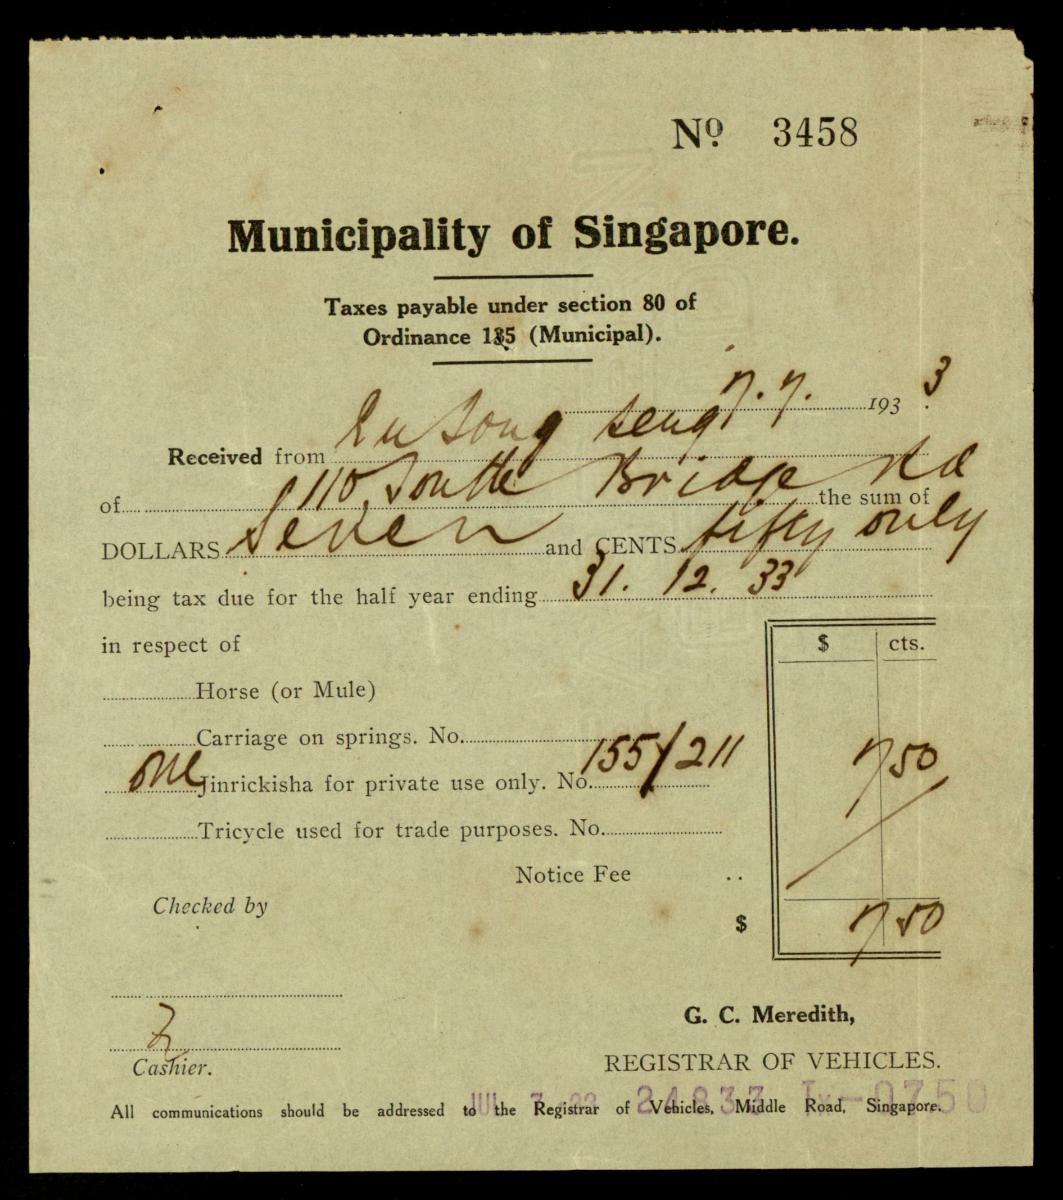 Nº 3458
Municipality of Singapore.
Taxes payable under section 80 of
Ordinance 135 (Municipal).
7. 7. 1933.
Received from Eu Tong Seng
of 110, South Bridge Rd the sum of
DOLLARS Seven and CENTS fifty only
being tax due for the half year ending 31. 12. 33
in respect of
$ cts.
Horse (or Mule)
Carriage on springs. No.
one Jinrickisha for private use only. No. 1557/211 7 50
Tricycle used for trade purposes. No.
Notice Fee ..
Checked by
$ 7 50
G. C. Meredith,
Cashier.
REGISTRAR OF VEHICLES.
JUL 7 33 24833 Tx—0750
All communications should be addressed to the Registrar of Vehicles, Middle Road, Singapore.